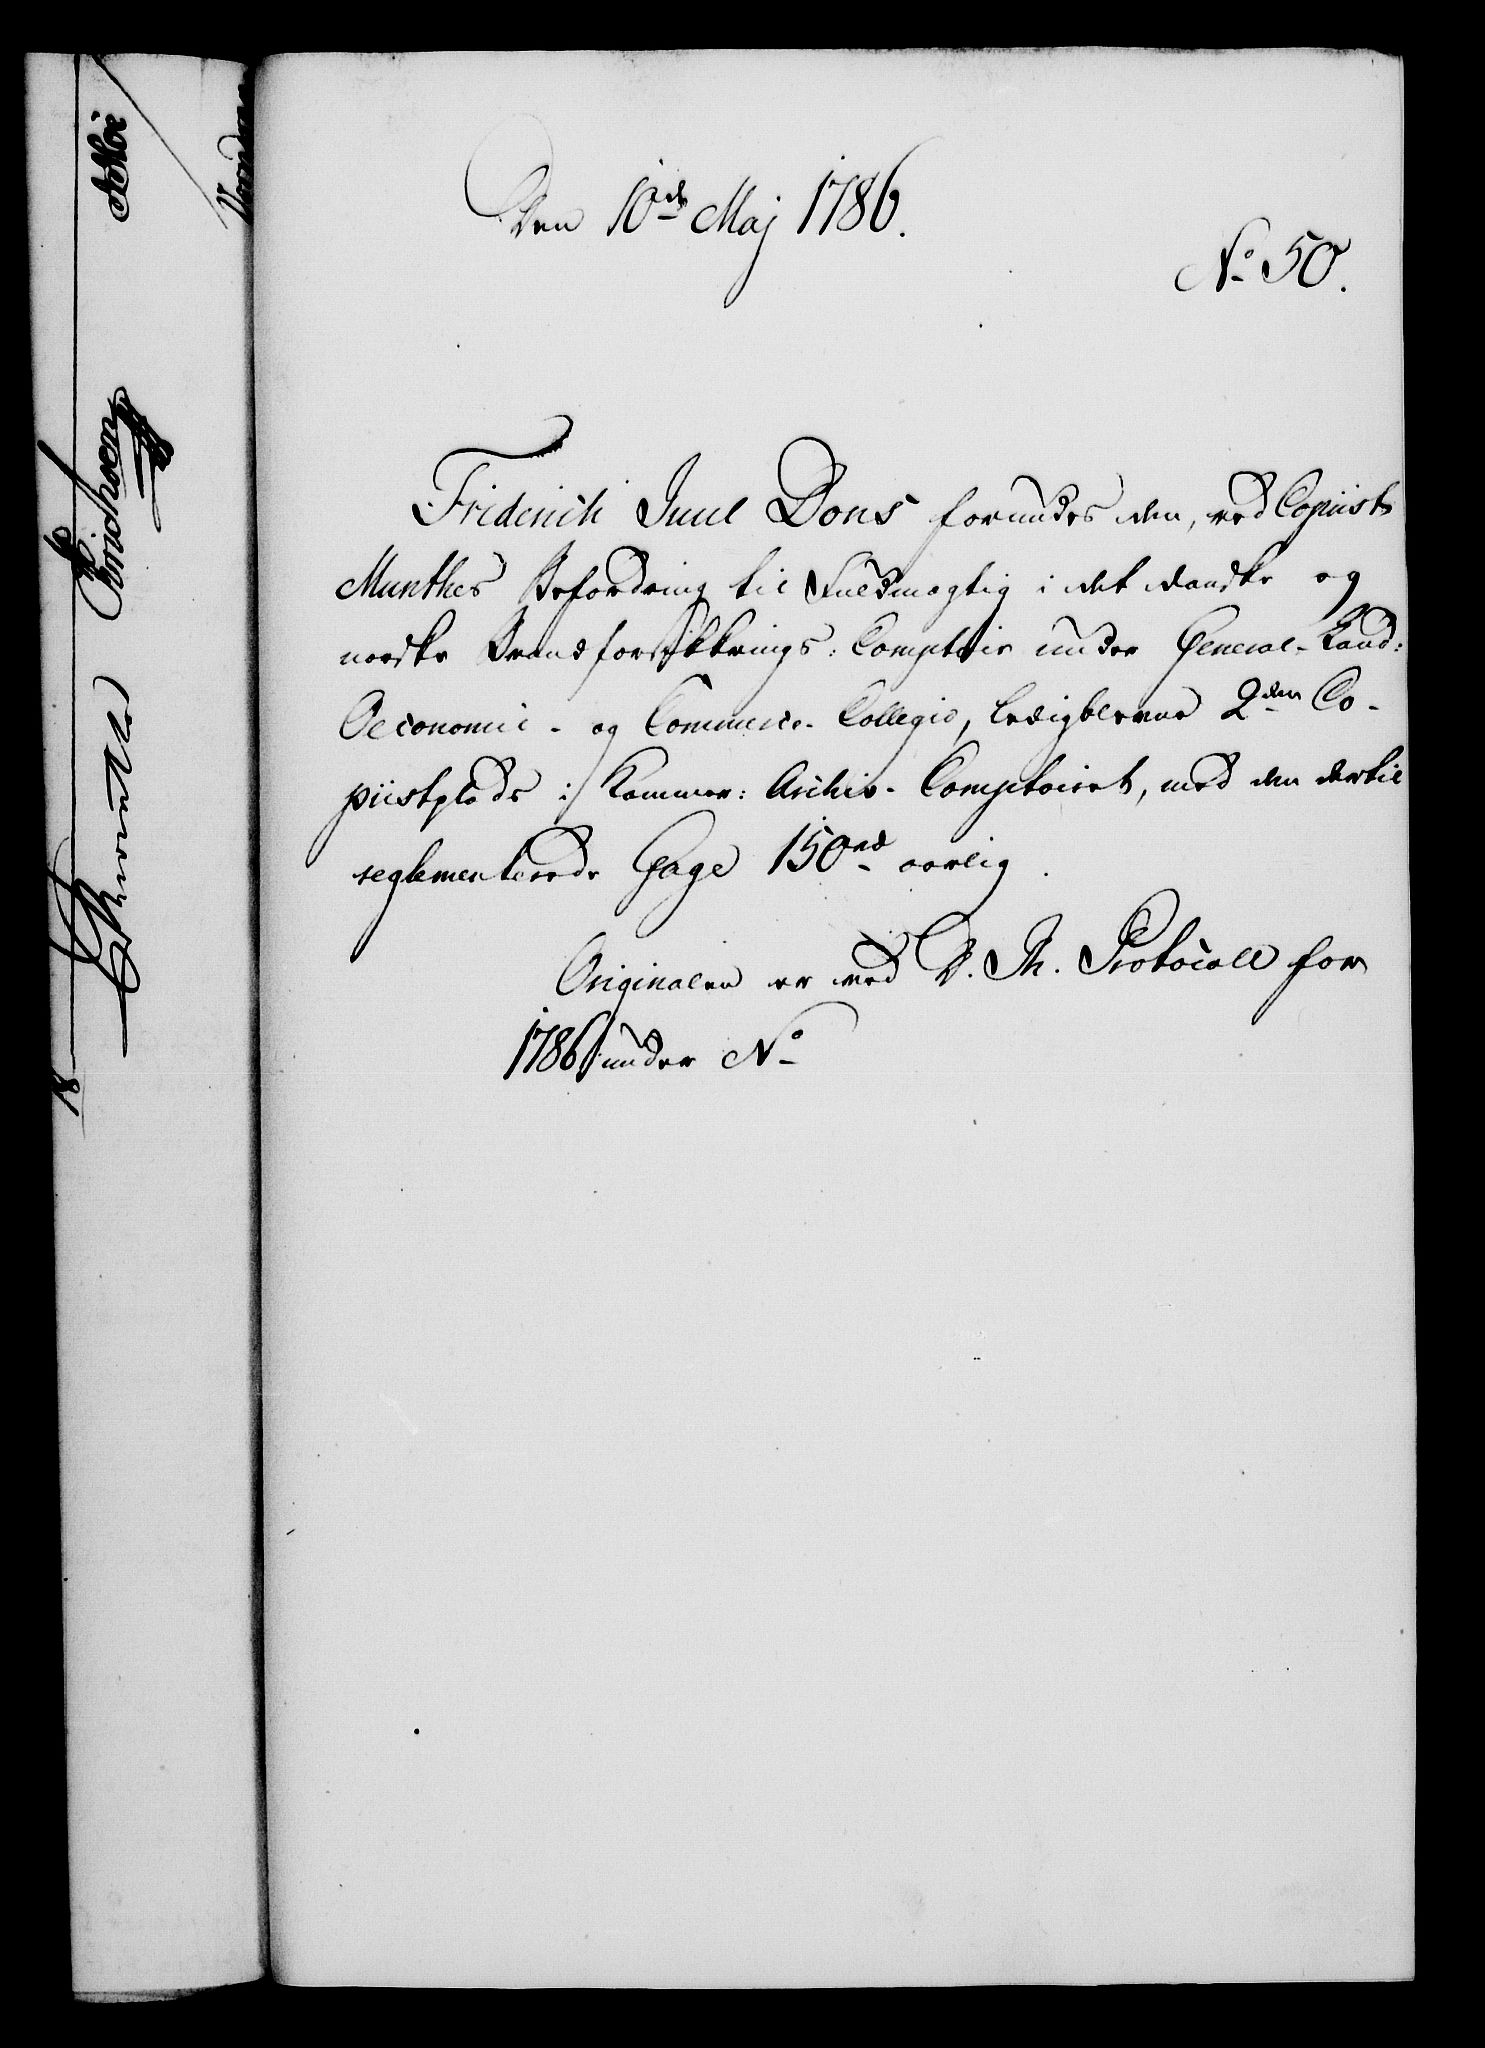 Den 10de Maj 1786.
No 50.
Friderich Juul Dons forundes den, ved Copiist
Munthes Befordring til Fuldmægtig i det danske og
norske Brandforsikkrings: Comptoir under General-Land:
Oeconomie- og Commerce-Collegio, ledigblevne 2den Co-
piistplads i Kammer: Archiv-Comptoiret, med den dertil
reglementerede Gage 150rd aarlig.
Originalen er ved D. Th. Protocoll for
1786 under No